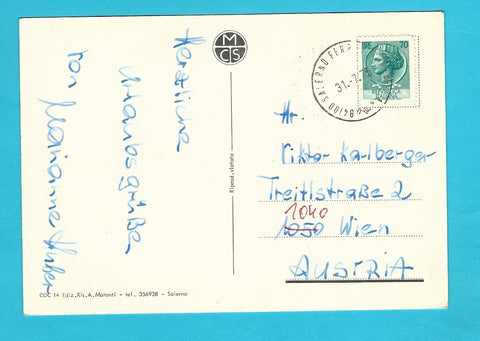 Herzliche
Urlaubsgrüße
von Marianne Huber
M
CS
Ripr. vietata
COC 14 Ediz. Ris. A. Matonti - tel. 356938 - Salerno
84100 SALERNO FERR
31.-7.
LIRE 70
Hr.
Viktor Kalberger
Treitlstraße 2
1040
1050 Wien
AUSTRIA